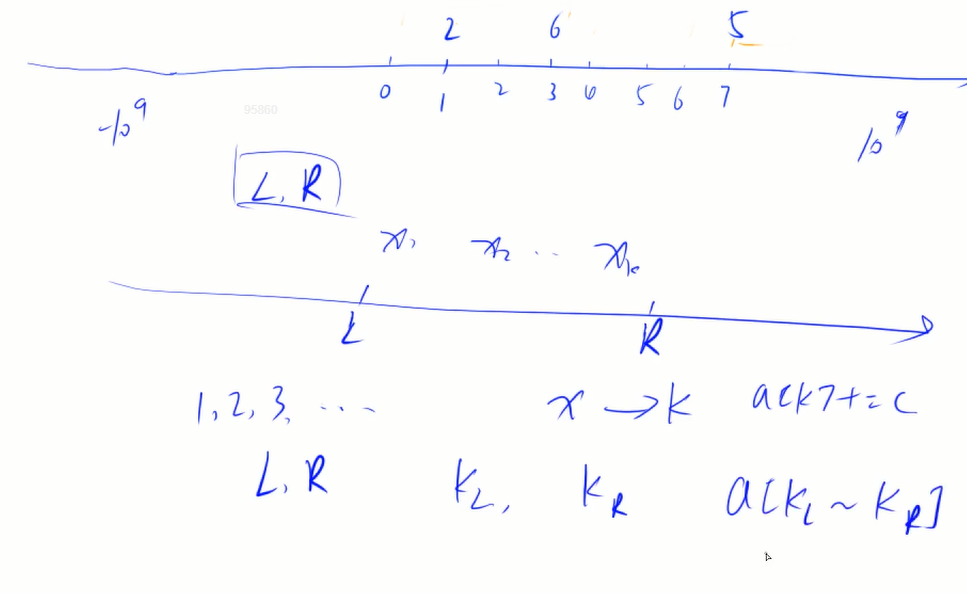 2 6 5
0 1 2 3 4 5 6 7
-10^9 10^9
95860
L, R
x₁ x₂ ... xₖ
L R
1, 2, 3, ... x → k a[k]+=c
L, R k_L, k_R a[k_L ~ k_R]